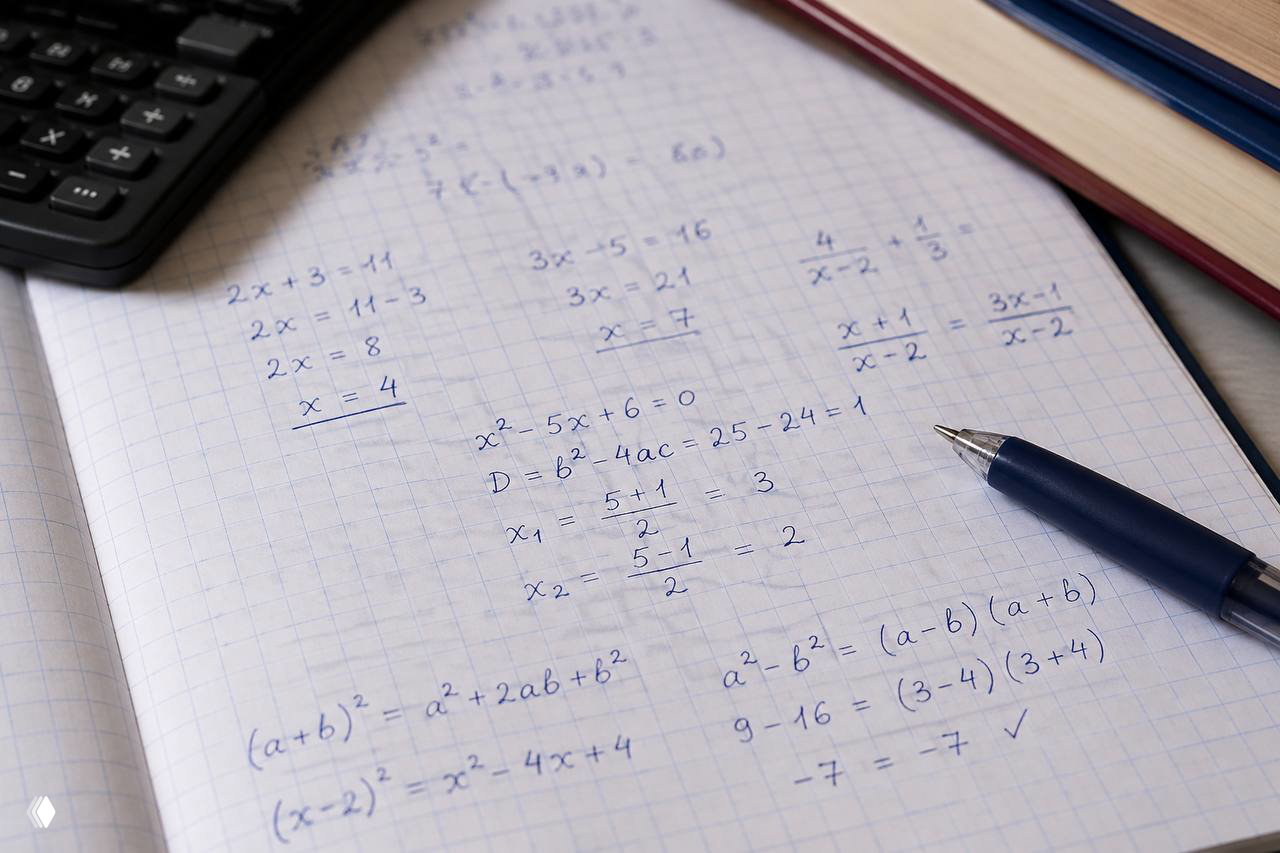 2x + 3 = 11
2x = 11 - 3
2x = 8
x = 4
3x - 5 = 16
3x = 21
x = 7
4/(x - 2) + 1/3 =
(x + 1)/(x - 2) = (3x - 1)/(x - 2)
x² - 5x + 6 = 0
D = b² - 4ac = 25 - 24 = 1
x₁ = (5 + 1)/2 = 3
x₂ = (5 - 1)/2 = 2
(a + b)² = a² + 2ab + b²
(x - 2)² = x² - 4x + 4
a² - b² = (a - b)(a + b)
9 - 16 = (3 - 4)(3 + 4)
-7 = -7 ✓